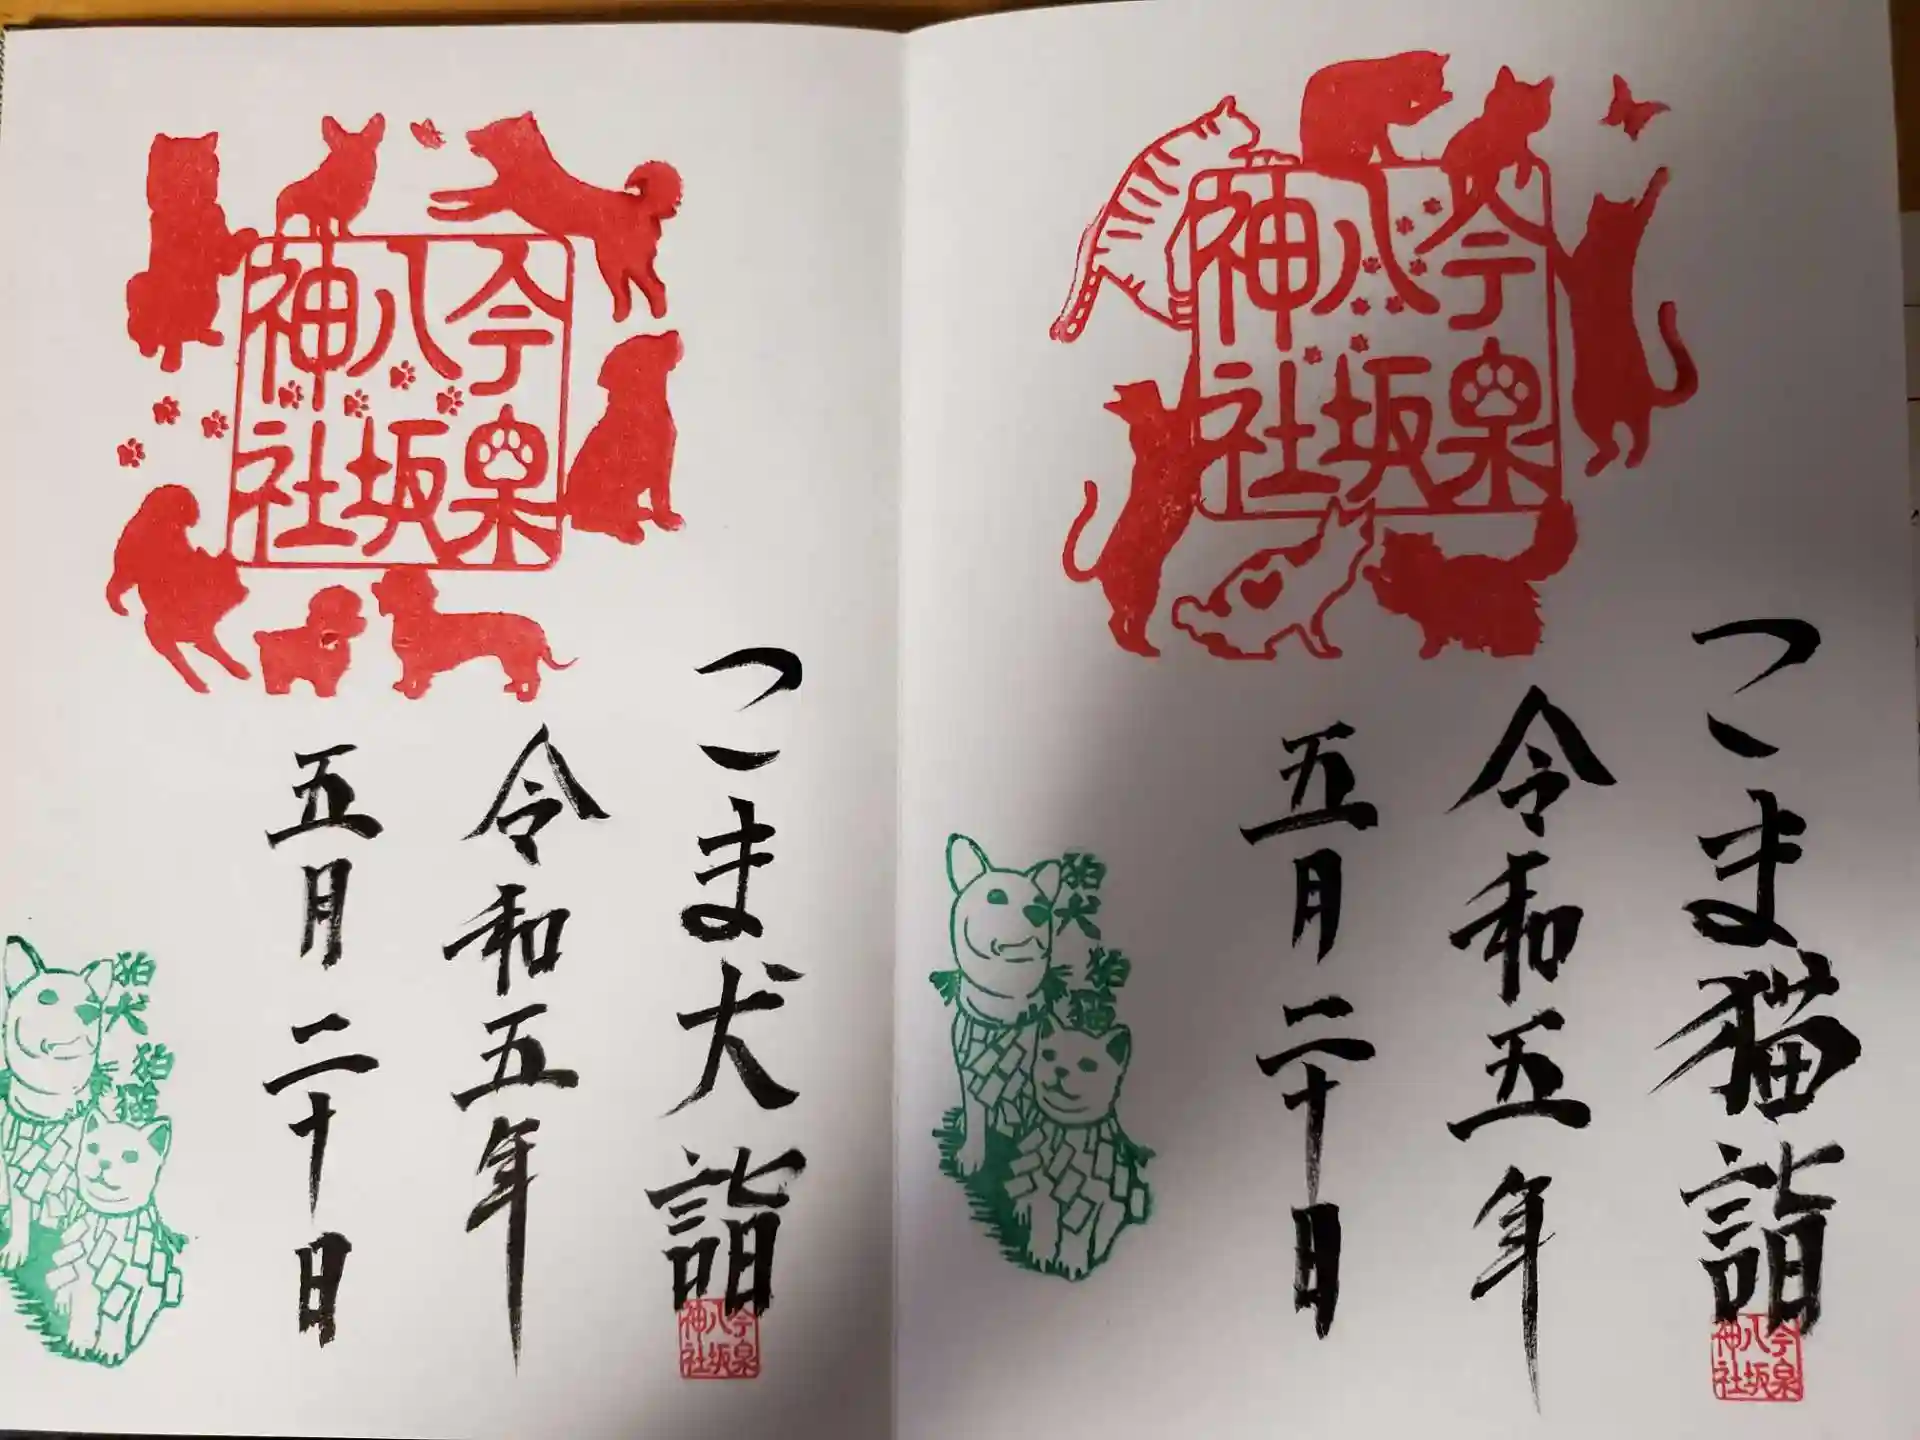 こま猫詣
令和五年
五月二十日
今泉
八坂
神社
狛犬
狛猫
今泉
八坂
神社
こま犬詣
令和五年
五月二十日
今泉
八坂
神社
狛犬
狛猫
今泉
八坂
神社